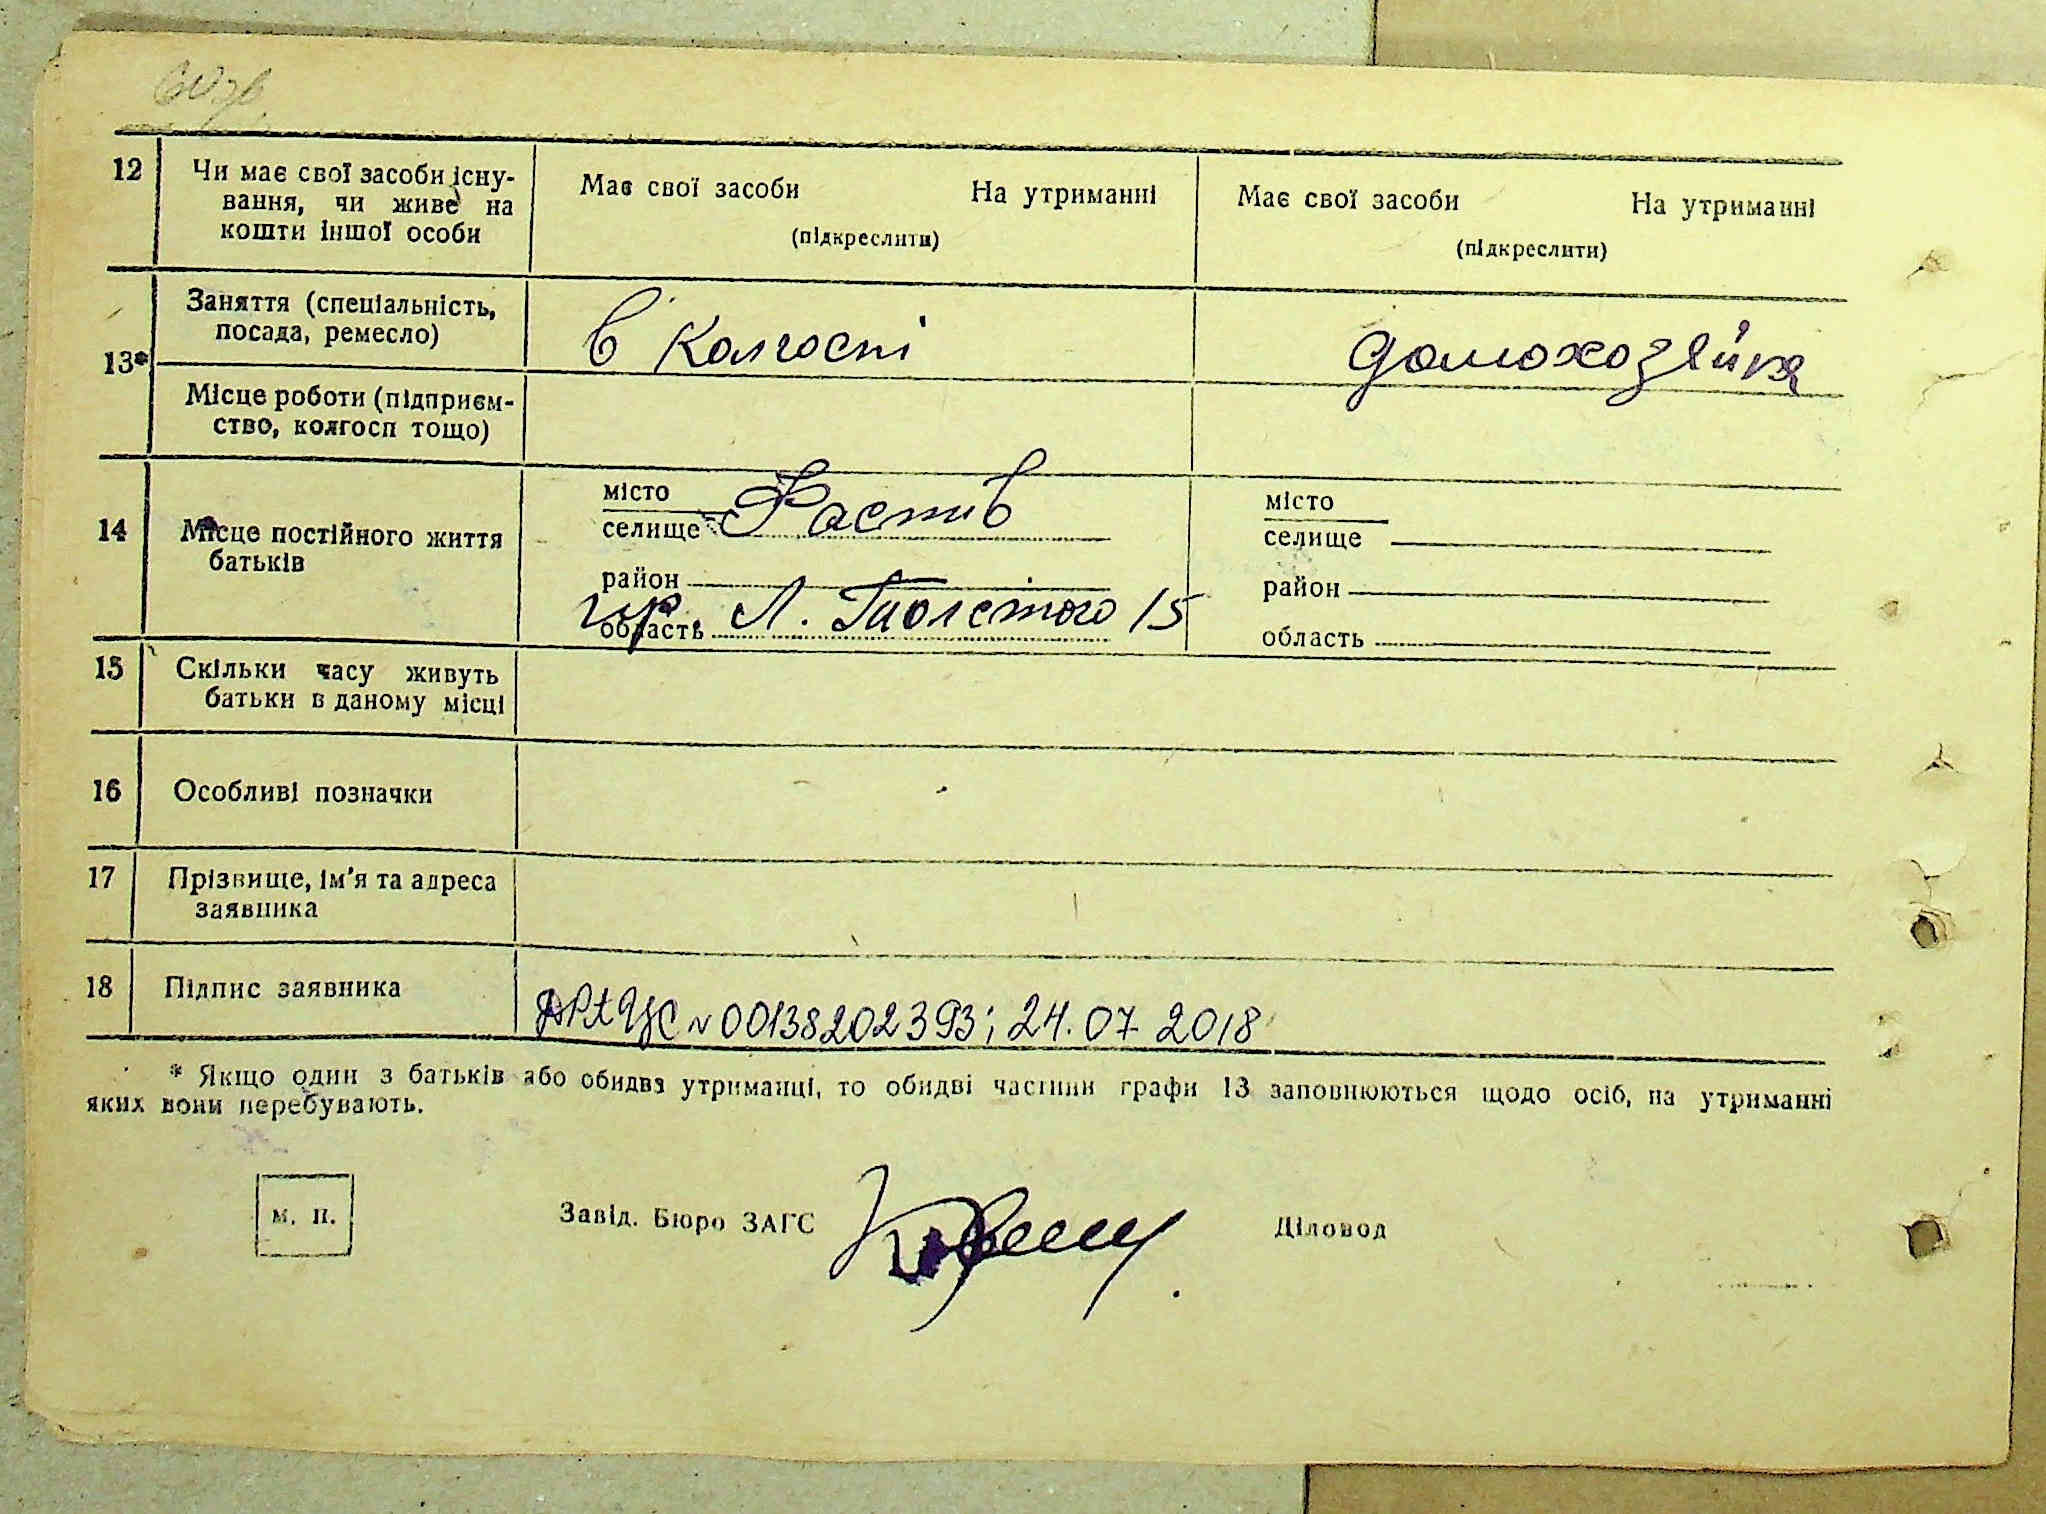 12 Чи має свої засоби існу-
вання, чи живе на
кошти іншої особи
Має свої засоби На утриманні
(підкреслити)
Має свої засоби На утриманні
(підкреслити)
13* Заняття (спеціальність,
посада, ремесло)
в колгоспі
домохозяйка
Місце роботи (підприєм-
ство, колгосп тощо)
14 Місце постійного життя
батьків
місто
селище Фастів
район
область
Л. Толстого 15
місто
селище
район
область
15 Скільки часу живуть
батьки в даному місці
16 Особливі позначки
17 Прізвище, ім'я та адреса
заявника
18 Підпис заявника
ДРАЦС № 00138202393; 24.07 2018
* Якщо один з батьків або обидва утриманці, то обидві частини графи 13 заповнюються щодо осіб, на утриманні
яких вони перебувають.
м. п.
Завід. Бюро ЗАГС
Діловод